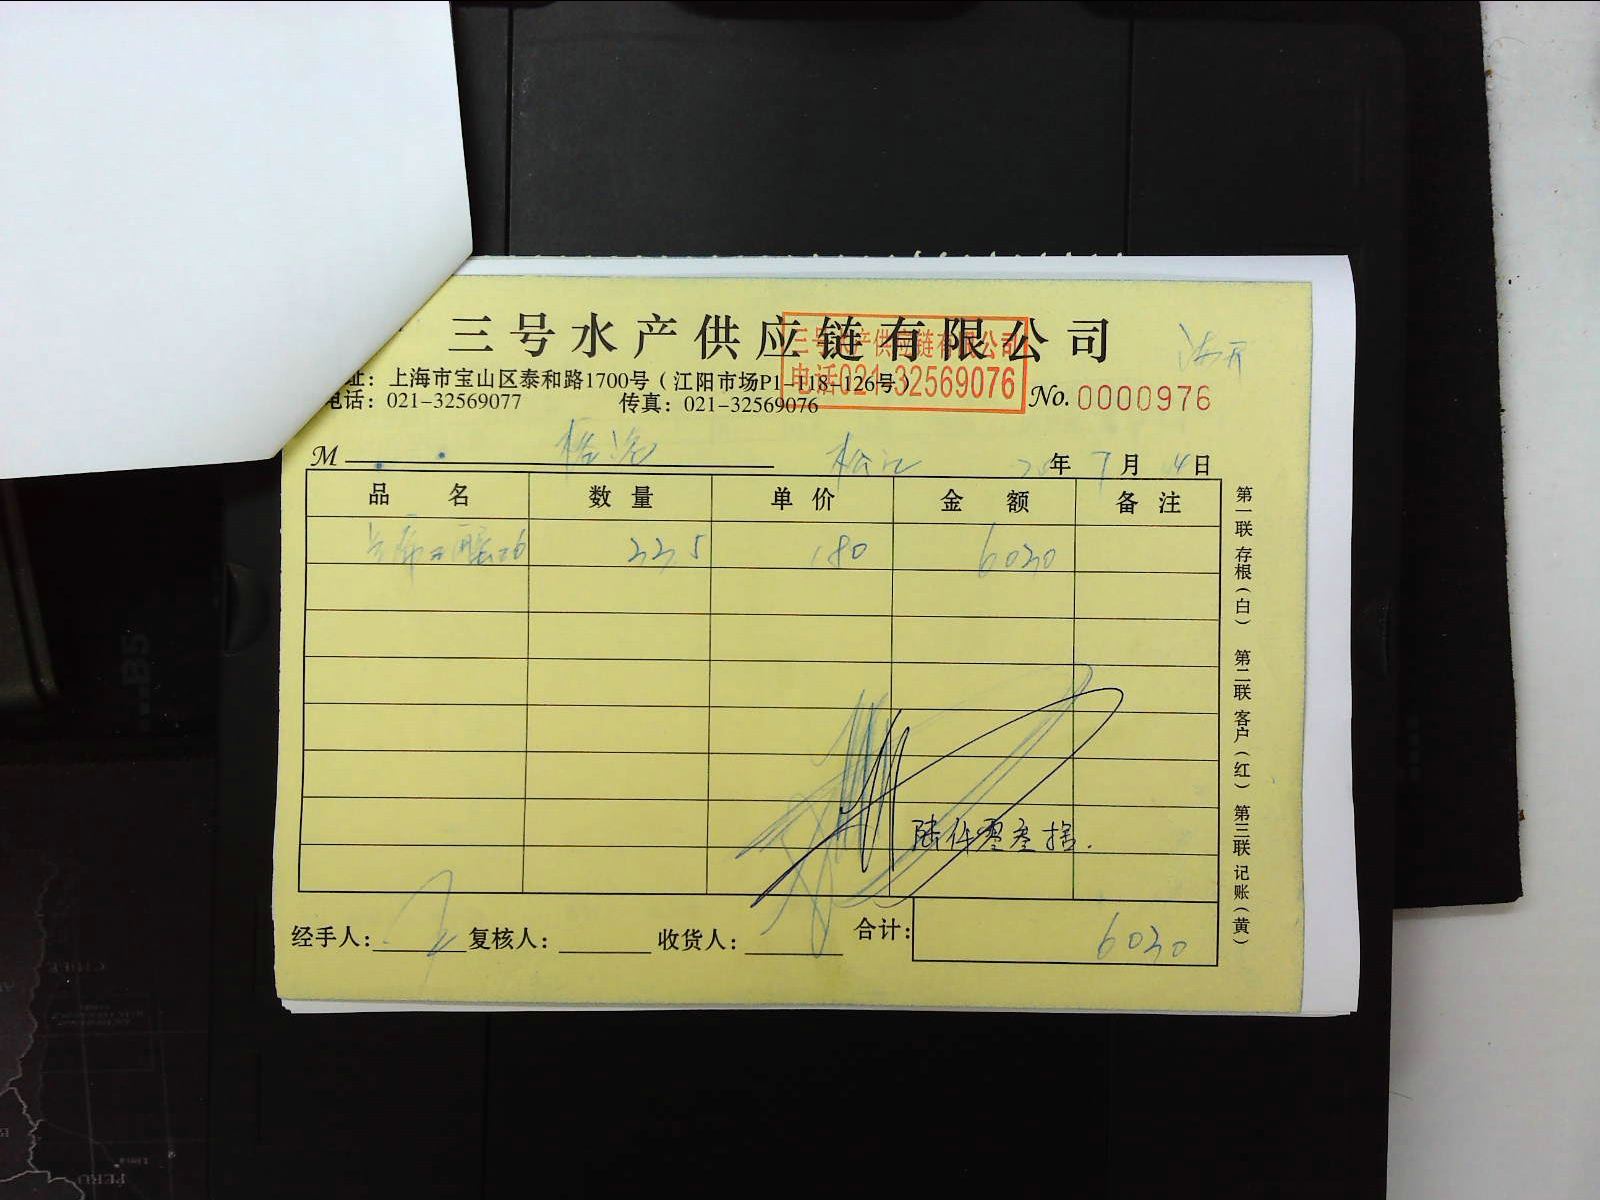 三号水产供应链有限公司
三号水产供应链有限公司
电话021-32569076
址：上海市宝山区泰和路1700号（江阳市场P1-118-126号）
电话：021-32569077 传真：021-32569076
No. 0000976
M 松江 年 7月14日
品名 数量 单价 金额 备注
33.5 180 6030
陆仟零叁拾.
经手人： 复核人： 收货人： 合计： 6030
第一联 存根（白） 第二联 客户（红） 第三联 记账（黄）